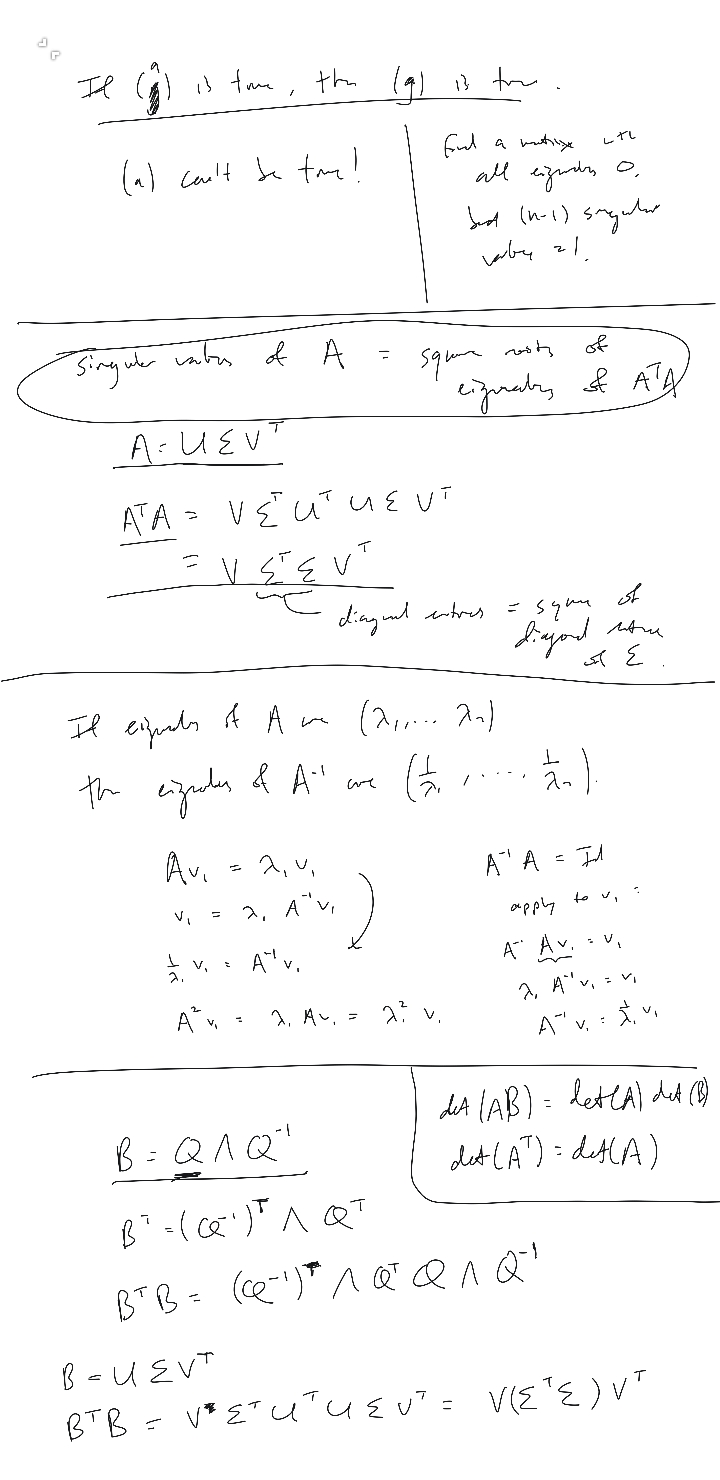 If (a) is true, then (g) is true.
(a) can't be true!
Find a matrix with
all eigvalues 0,
but (n-1) singular
values = 1.
singular values of A = square roots of
eigvalues of AᵀA
A = U Σ Vᵀ
AᵀA = V Σᵀ Uᵀ U Σ Vᵀ
= V Σᵀ Σ Vᵀ
diagonal entries = square of
diagonal entries
of Σ.
If eigvalues of A are (λ₁, ... λₙ)
then eigvalues of A⁻¹ are (1/λ₁, ...., 1/λₙ).
Av₁ = λ₁ v₁
v₁ = λ₁ A⁻¹ v₁
1/λ₁ v₁ = A⁻¹ v₁
A² v₁ = λ₁ Av₁ = λ₁² v₁
A⁻¹ A = Id
apply to v₁ :
A⁻ Av₁ = v₁
λ₁ A⁻¹ v₁ = v₁
A⁻¹ v₁ = 1/λ₁ v₁
det(AB) = det(A) det(B)
det(Aᵀ) = det(A)
B = Q Λ Q⁻¹
Bᵀ = (Q⁻¹)ᵀ Λ Qᵀ
BᵀB = (Q⁻¹)ᵀ Λ Qᵀ Q Λ Q⁻¹
B = U Σ Vᵀ
BᵀB = V Σᵀ Uᵀ U Σ Vᵀ = V(ΣᵀΣ) Vᵀ